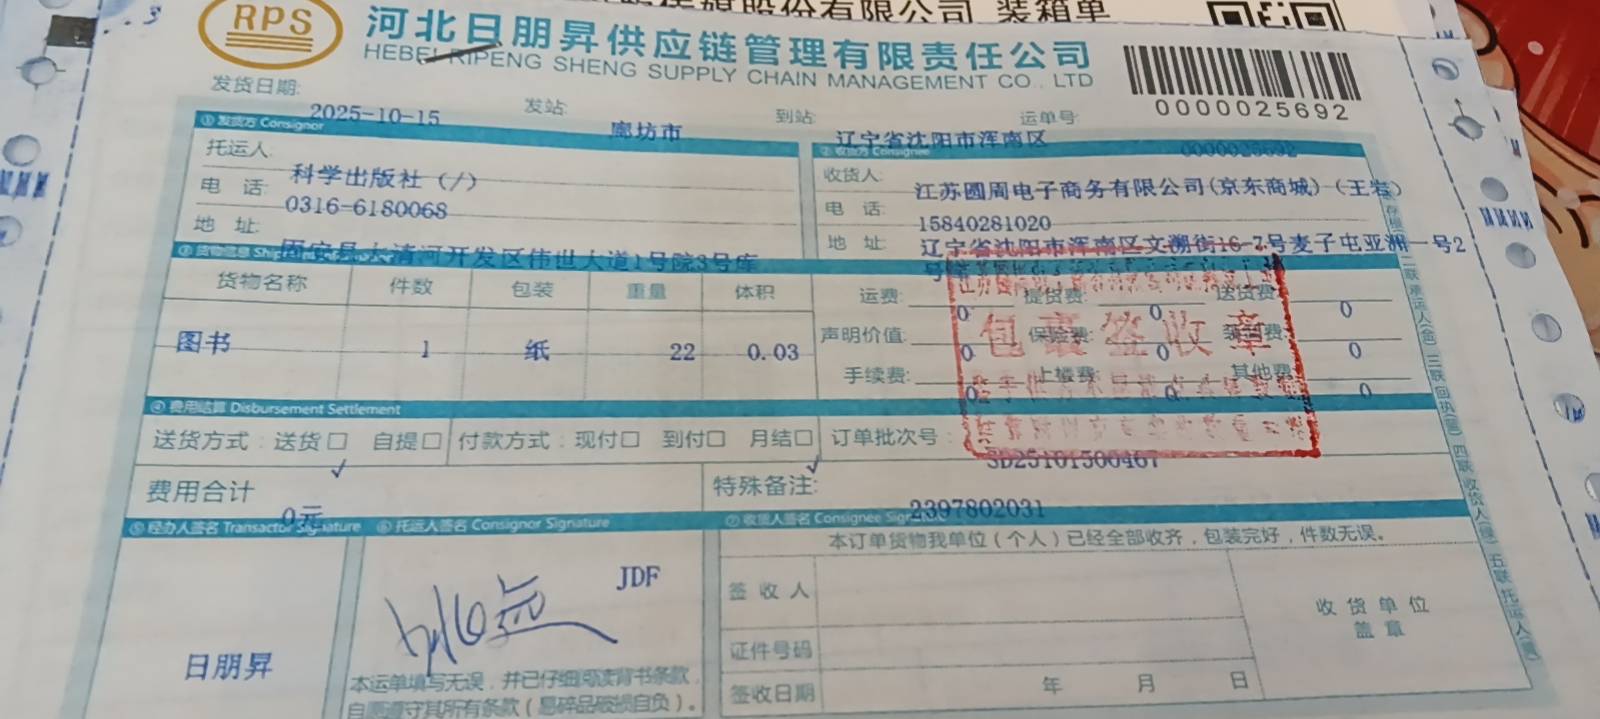 装箱单
RPS
河北日朋昇供应链管理有限责任公司
HEBEI RIPENG SHENG SUPPLY CHAIN MANAGEMENT CO., LTD
0000025692
发货日期: 2025-10-15 发站: 廊坊市 到站: 辽宁省沈阳市浑南区 运单号: 0000025692
① 发货方 Consignor ② 收货方 Consignee
托运人: 科学出版社（/） 收货人: 江苏圆周电子商务有限公司(京东商城)（王岩）
电 话: 0316-6180068 电 话: 15840281020
地 址: 固安县大清河开发区伟世大道1号院3号库 地 址: 辽宁省沈阳市浑南区文溯街16-7号麦子屯亚洲一号2
③ 货物信息
货物名称 件数 包装 重量 体积 运费: 0 提货费: 0 送货费: 0
图书 1 纸 22 0.03 声明价值: 0 保险费: 0 装卸费: 0
手续费: 0 上楼费: 0 其他费: 0
包裹签收章
④ 费用结算 Disbursement Settlement
送货方式: 送货□ 自提□ 付款方式: 现付□ 到付□ 月结□ 订单批次号: SD25101500467
费用合计 0元 特殊备注: 2397802031
⑤ 经办人签名 Transactor Signature ⑥ 托运人签名 Consignor Signature ⑦ 收货人签名 Consignee Signature
本订单货物我单位（个人）已经全部收齐，包装完好，件数无误。
日朋昇 JDF
签收人
收货单位
盖章
证件号码
签收日期 年 月 日
本运单填写无误，并已仔细阅读背书条款，
自愿遵守其所有条款（易碎品破损自负）。